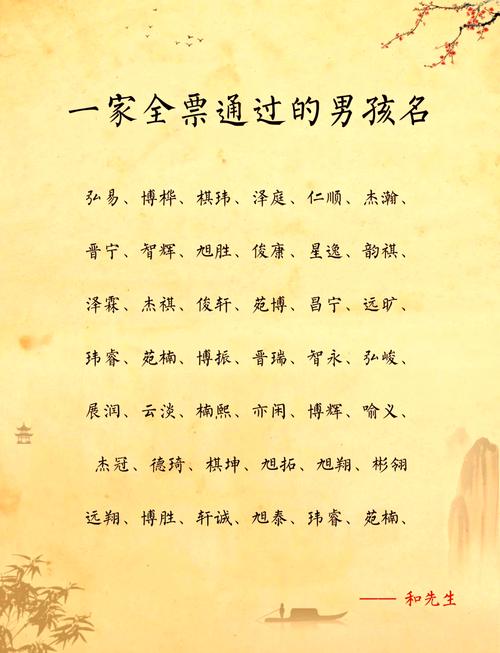 一家全票通过的男孩名
弘易、博桦、棋玮、泽庭、仁顺、杰瀚、
晋宁、智辉、旭胜、俊康、星逸、韵祺、
泽霖、杰祺、俊轩、苑博、昌宁、远旷、
玮睿、苑楠、博振、晋瑞、智永、弘峻、
展润、云淡、楠熙、亦闲、博辉、喻义、
杰冠、德琦、棋坤、旭拓、旭翔、彬翎
远翔、博胜、轩诚、旭泰、玮睿、苑楠、
—— 和先生